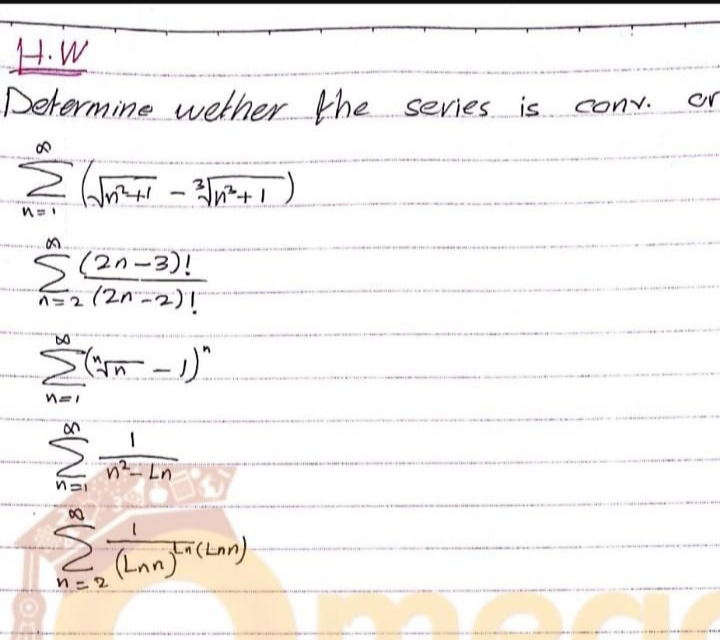 H.W
Determine wether the series is conv. or
∞ Σ n=1 (√n²+1 - ³√n³+1)
∞ Σ n=2 (2n-3)! / (2n-2)!
∞ Σ n=1 (ⁿ√n - 1)ⁿ
∞ Σ n=1 1 / n²-Ln
∞ Σ n=2 1 / (Lnn)^Ln(Lnn)